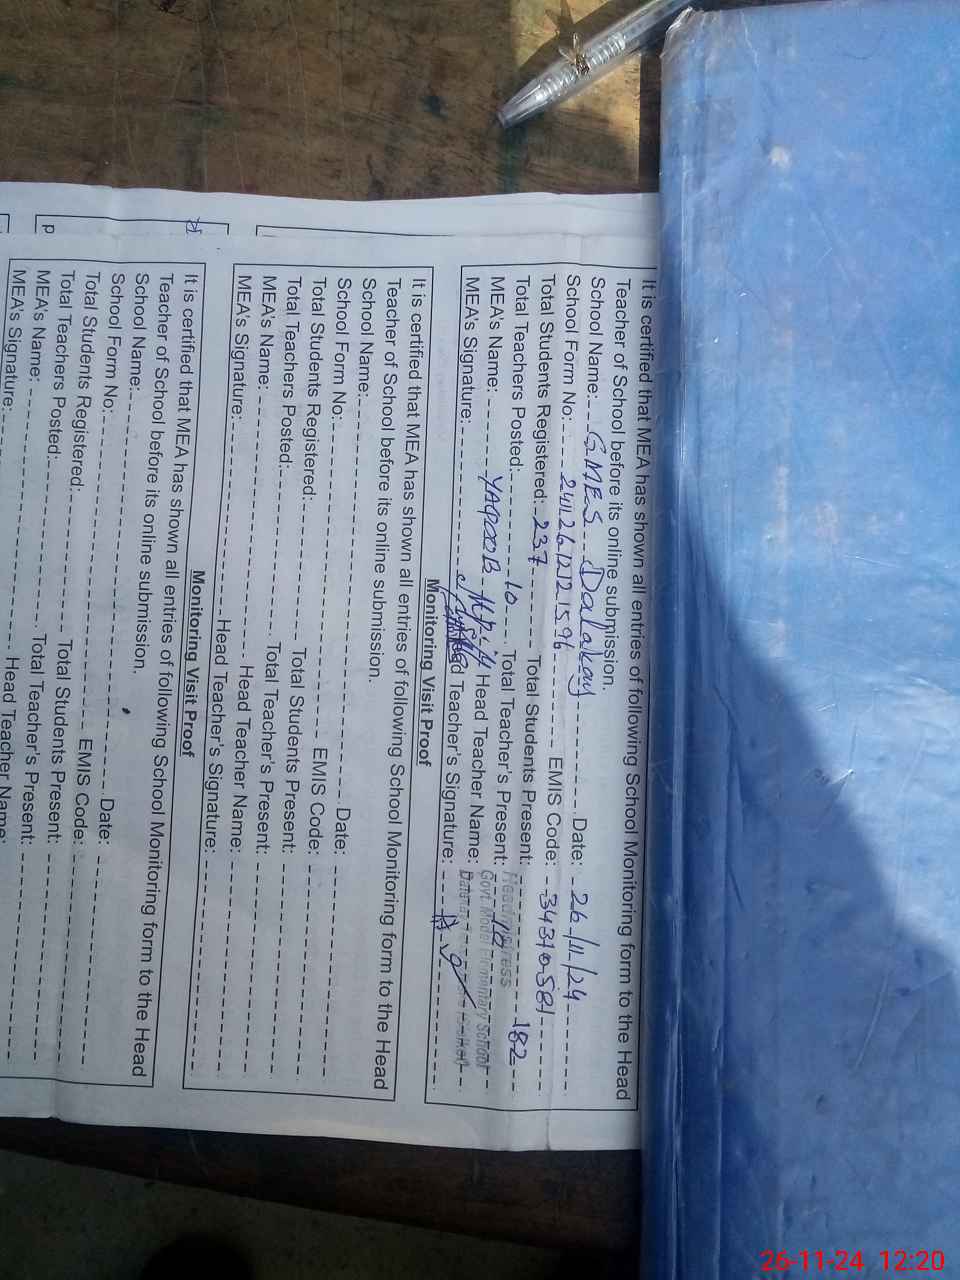 It is certified that MEA has shown all entries of following School Monitoring form to the Head
Teacher of School before its online submission.
School Name: GMES Dalakay Date: 26/11/24
School Form No: EMIS Code: 34310581
Total Students Registered: 237 Total Students Present: 182
Total Teachers Posted: 10 Total Teacher's Present: 10
Headmistress
MEA's Name: YAQOOB Head Teacher Name: Govt. Model Elementary School
MEA's Signature: Head Teacher's Signature:
Monitoring Visit Proof
It is certified that MEA has shown all entries of following School Monitoring form to the Head
Teacher of School before its online submission.
School Name: Date:
School Form No: EMIS Code:
Total Students Registered: Total Students Present:
Total Teachers Posted: Total Teacher's Present:
MEA's Name: Head Teacher Name:
MEA's Signature: Head Teacher's Signature:
Monitoring Visit Proof
It is certified that MEA has shown all entries of following School Monitoring form to the Head
Teacher of School before its online submission.
School Name: Date:
School Form No: EMIS Code:
Total Students Registered: Total Students Present:
Total Teachers Posted: Total Teacher's Present:
MEA's Name: Head Teacher Name:
MEA's Signature:
26-11-24 12:20